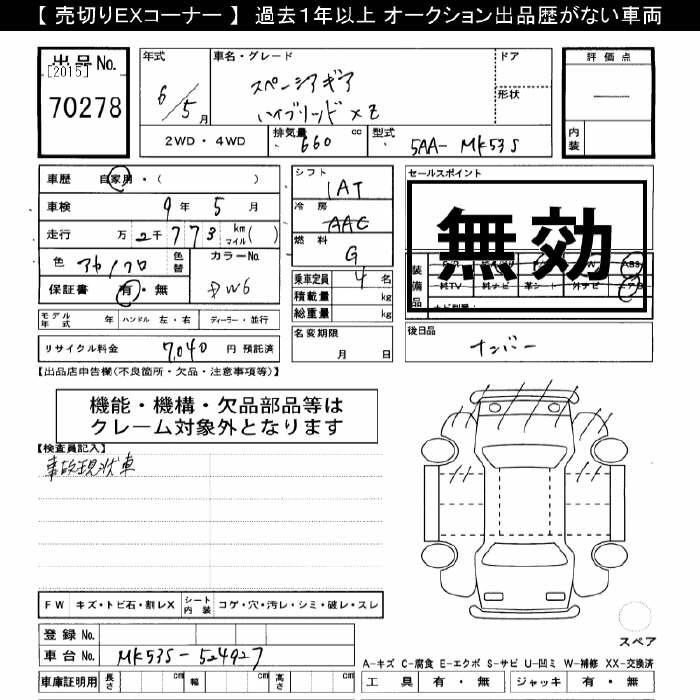 【 売切りEXコーナー 】 過去1年以上 オークション出品歴がない車両
出品No.
[2015]
70278
年式
6/5月
車名・グレード
スペーシアギア
ハイブリッド XZ
ドア
形状
評価点
内装
2WD・4WD
排気量 660 cc
型式 5AA- MK53S
車歴 自家用・( )
車検 9年 5月
走行 万 2千 773 km マイル( )
色 アカ/クロ 色替
カラーNo.
DW6
保証書 有・無
シフト
IAT
冷房
AAC
燃料
G
乗車定員 4 名
積載量 kg
総重量 kg
セールスポイント
無効
装備品
純TV 純ナビ 革シート 外ナビ
モデル年式 年 ハンドル 左・右 ディーラー・並行
リサイクル料金 7,040 円 預託済
名変期限
月 日
後日品
ナンバー
【出品店申告欄(不良箇所・欠品・注意事項等)】
機能・機構・欠品部品等は
クレーム対象外となります
【検査員記入】
事故現状車
FW キズ・トビ石・割レX シート内装 コゲ・穴・汚レ・シミ・破レ・スレ
スペア
登録 No.
車台 No. MK53S-524927
A-キズ C-腐食 E-エクボ S-サビ U-凹ミ W-補修 XX-交換済
車庫証明用 長さ cm 幅 cm 高さ cm
工具 有・無 ジャッキ 有・無